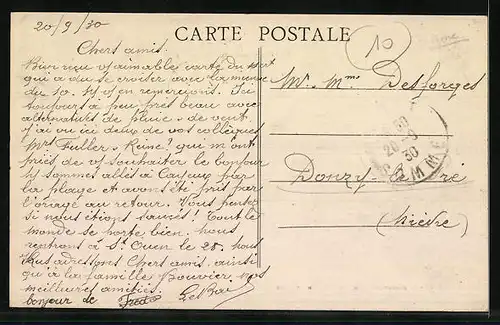 20/9/30
CARTE POSTALE
10
Chers amis.
Bien reçu v/ aimable carte du
qui a dû se croiser avec la mienne
du 10. N/ v/ en remercions. Ici
toujours à peu près beau avec
alternatives de pluie & de vent.
J'ai vu ici deux de vos collègues
Mrs Fuller & Reine? qui m'ont
priés de v/ souhaiter le bonjour
N/ sommes allés à Cayeux par
la plage et avons été pris par
l'orage au retour. Vous pensez
si nous étions sauvés! Tout le
monde se porte bien. Nous
rentrons à St. Ouen le 28. Nous
vous adressons Chers amis ainsi
qu'à la famille Bouvier nos
meilleures amitiés.
bonjour de Fredo
Mr. Mme Desforges
Donzy
(Nièvre)